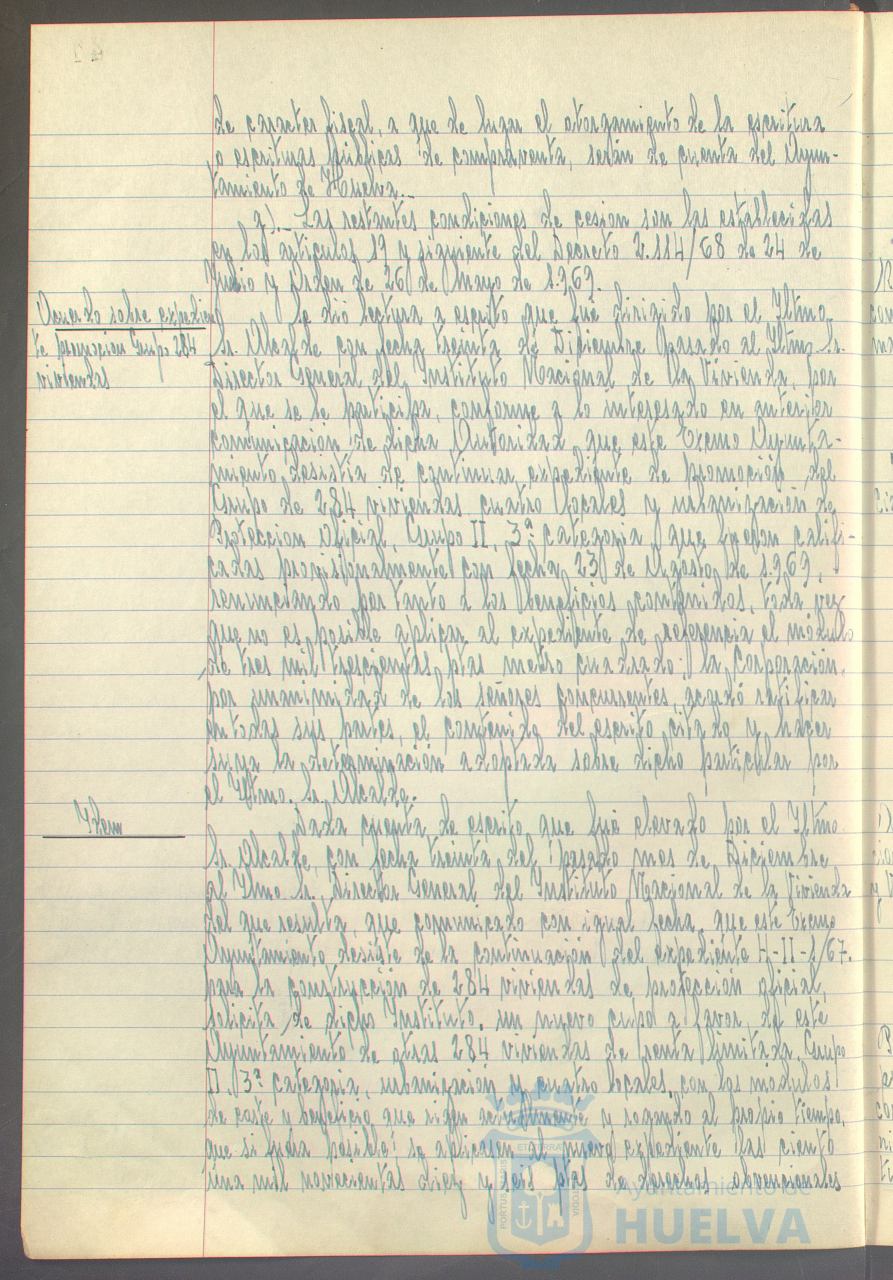 de caracter fiscal, a que de lugar el otorgamiento de la escritura
o escrituras públicas de compraventa, serán de cuenta del Ayun-
tamiento de Huelva._
g)._ Las restantes condiciones de cesion son las establecidas
en los articulos 19 y siguiente del Decreto 2.114/68 de 24 de
Julio y Orden de 26 de Mayo de 1.969.
Acuerdo sobre expedien
te promocion Grupo 284
viviendas
Se dió lectura a escrito que fué dirigido por el Iltmo.
Sr. Alcalde con fecha treinta de Diciembre pasado al Iltmo. Sr.
Director General del Instituto Nacional de la Vivienda, por
el que se le participa, conforme a lo interesado en anterior
comunicación de dicha Autoridad, que este Excmo Ayunta-
miento desistia de continuar expediente de promoción del
Grupo de 284 viviendas, cuatro locales y urbanización de
Proteccion Oficial, Grupo II, 3ª categoria, que fueron califi-
cadas provisionalmente con fecha 23 de Agosto de 1.969,
renunciando por tanto a los beneficios contenidos, toda vez
que no es posible aplicar al expediente de referencia el módulo
de tres mil trescientas ptas metro cuadrado; la Corporación,
por unanimidad de los señores concurrentes, acordó ratificar
en todas sus partes, el contenido del escrito citado y hacer
suya la determinación adoptada sobre dicho particular por
el Iltmo. Sr. Alcalde.
Idem
Dada cuenta de escrito que fué elevado por el Iltmo.
Sr. Alcalde, con fecha treinta del pasado mes de Diciembre
al Ilmo. Sr. Director General del Instituto Nacional de la Vivienda
del que resulta, que comunicado con igual fecha, que este Excmo
Ayuntamiento desiste de la continuación del expediente H-II-1/67.
para la construcción de 284 viviendas de protección oficial,
solicita de dicho Instituto, un nuevo cupo a favor de este
Ayuntamiento de otras 284 viviendas de renta limitada, Grupo
II, 3ª categoria, urbanización y cuatro locales, con los modulos
de coste y beneficio que rigen actualmente y rogando al propio tiempo,
que si fuera posible se aplicasen al nuevo expediente las ciento
una mil novecientas diez y seis ptas de derechos obvencionales
Ayuntamiento de
HUELVA